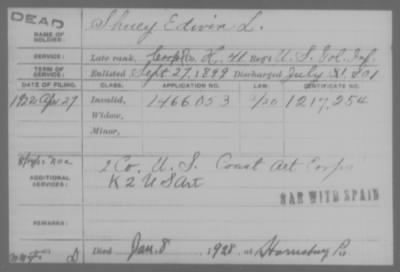 DEAD
NAME OF SOLDIER: Shuey Edwin L.
SERVICE: Late rank, Corpl Co. H, 41 Reg't U. S. Vol. Inf.
TERM OF SERVICE: Enlisted Sept 27, 1899 Discharged July 31, 1901
DATE OF FILING. CLASS. APPLICATION NO. LAW. CERTIFICATE NO.
1922 Apr 27 Invalid, 1466053 1217,254
Widow,
Minor,
ADDITIONAL SERVICES: 2 Co. U. S. Coast Art Corps
K 2 U S Art
WAR WITH SPAIN
REMARKS:
D Died Jan. 8, 1928, at Harrisburg Pa